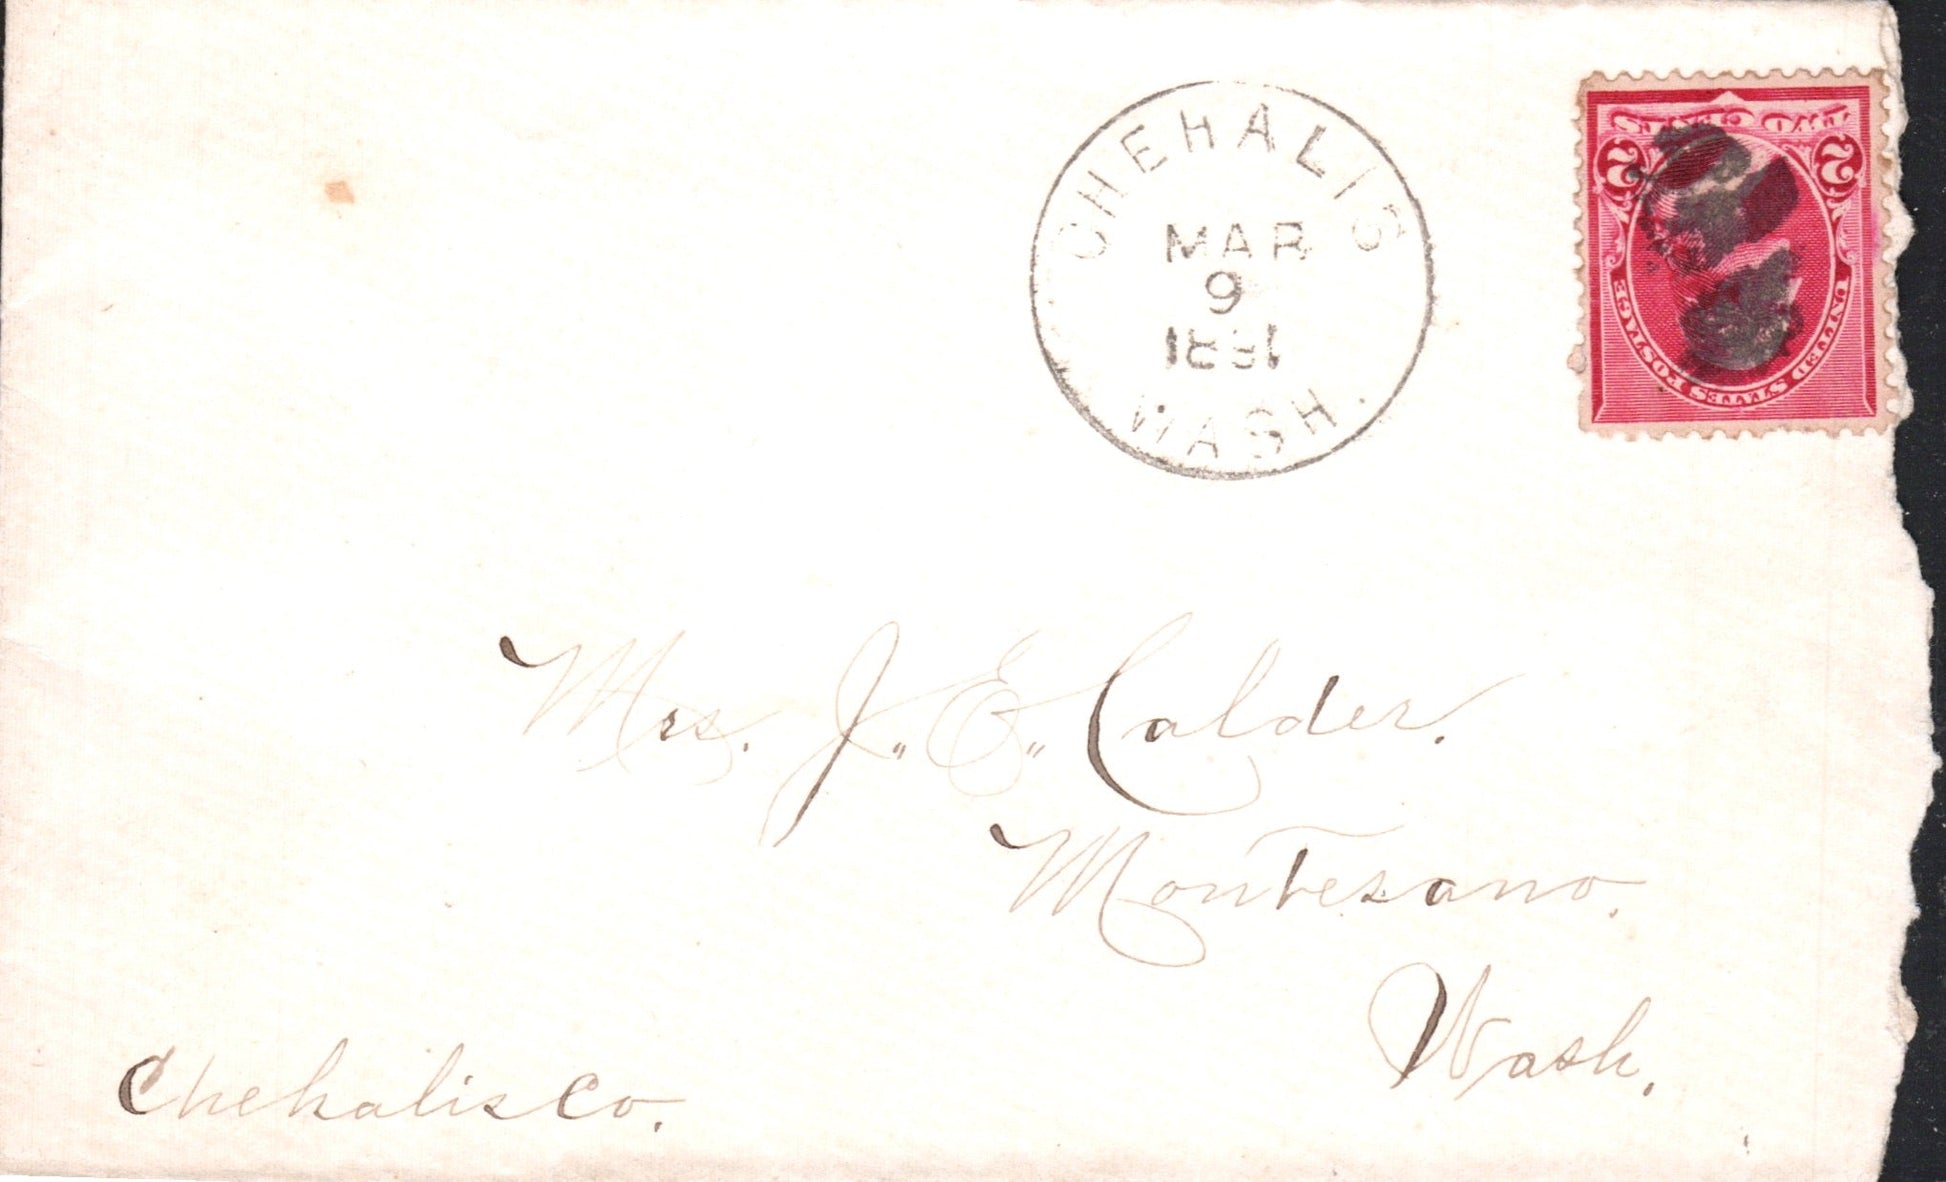 CHEHALIS
MAR
9
1891
WASH.
UNITED STATES POSTAGE
2 2
TWO CENTS
Mrs. J. E. Calder.
Montesano.
Wash.
Chehalis Co.